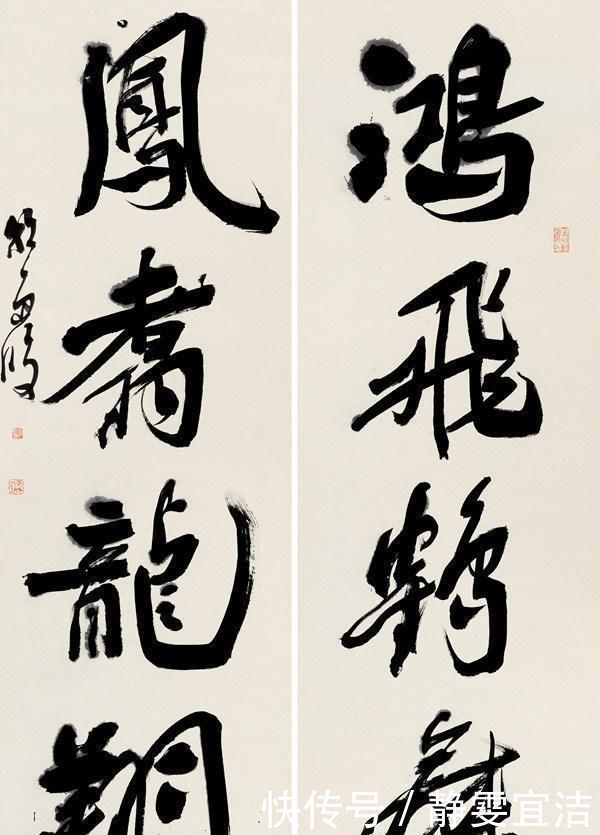 鴻飛鶴舞
鳳翥龍翔
快传号 / 静雯宜洁